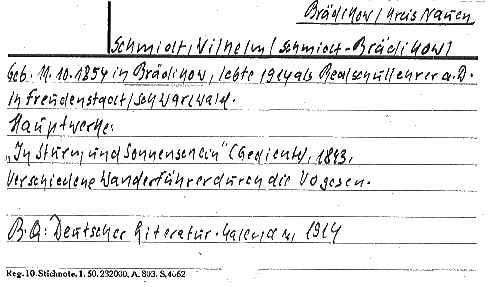 Brädikow/Kreis Nauen
Schmidt, Wilhelm (Schmidt-Brädikow)
Geb. 11.10.1854 in Brädikow, lebte 1914 als Realschullehrer a.D.
in Freudenstadt/Schwarzwald.
Hauptwerke:
„In Sturm und Sonnenschein" (Gedichte), 1893.
Verschiedene Wanderführer durch die Vogesen.
B.Q: Deutscher Literatur-Kalender, 1914
Reg. 10. Stichnote. 1. 50. 232000. A. 803. S. 4662